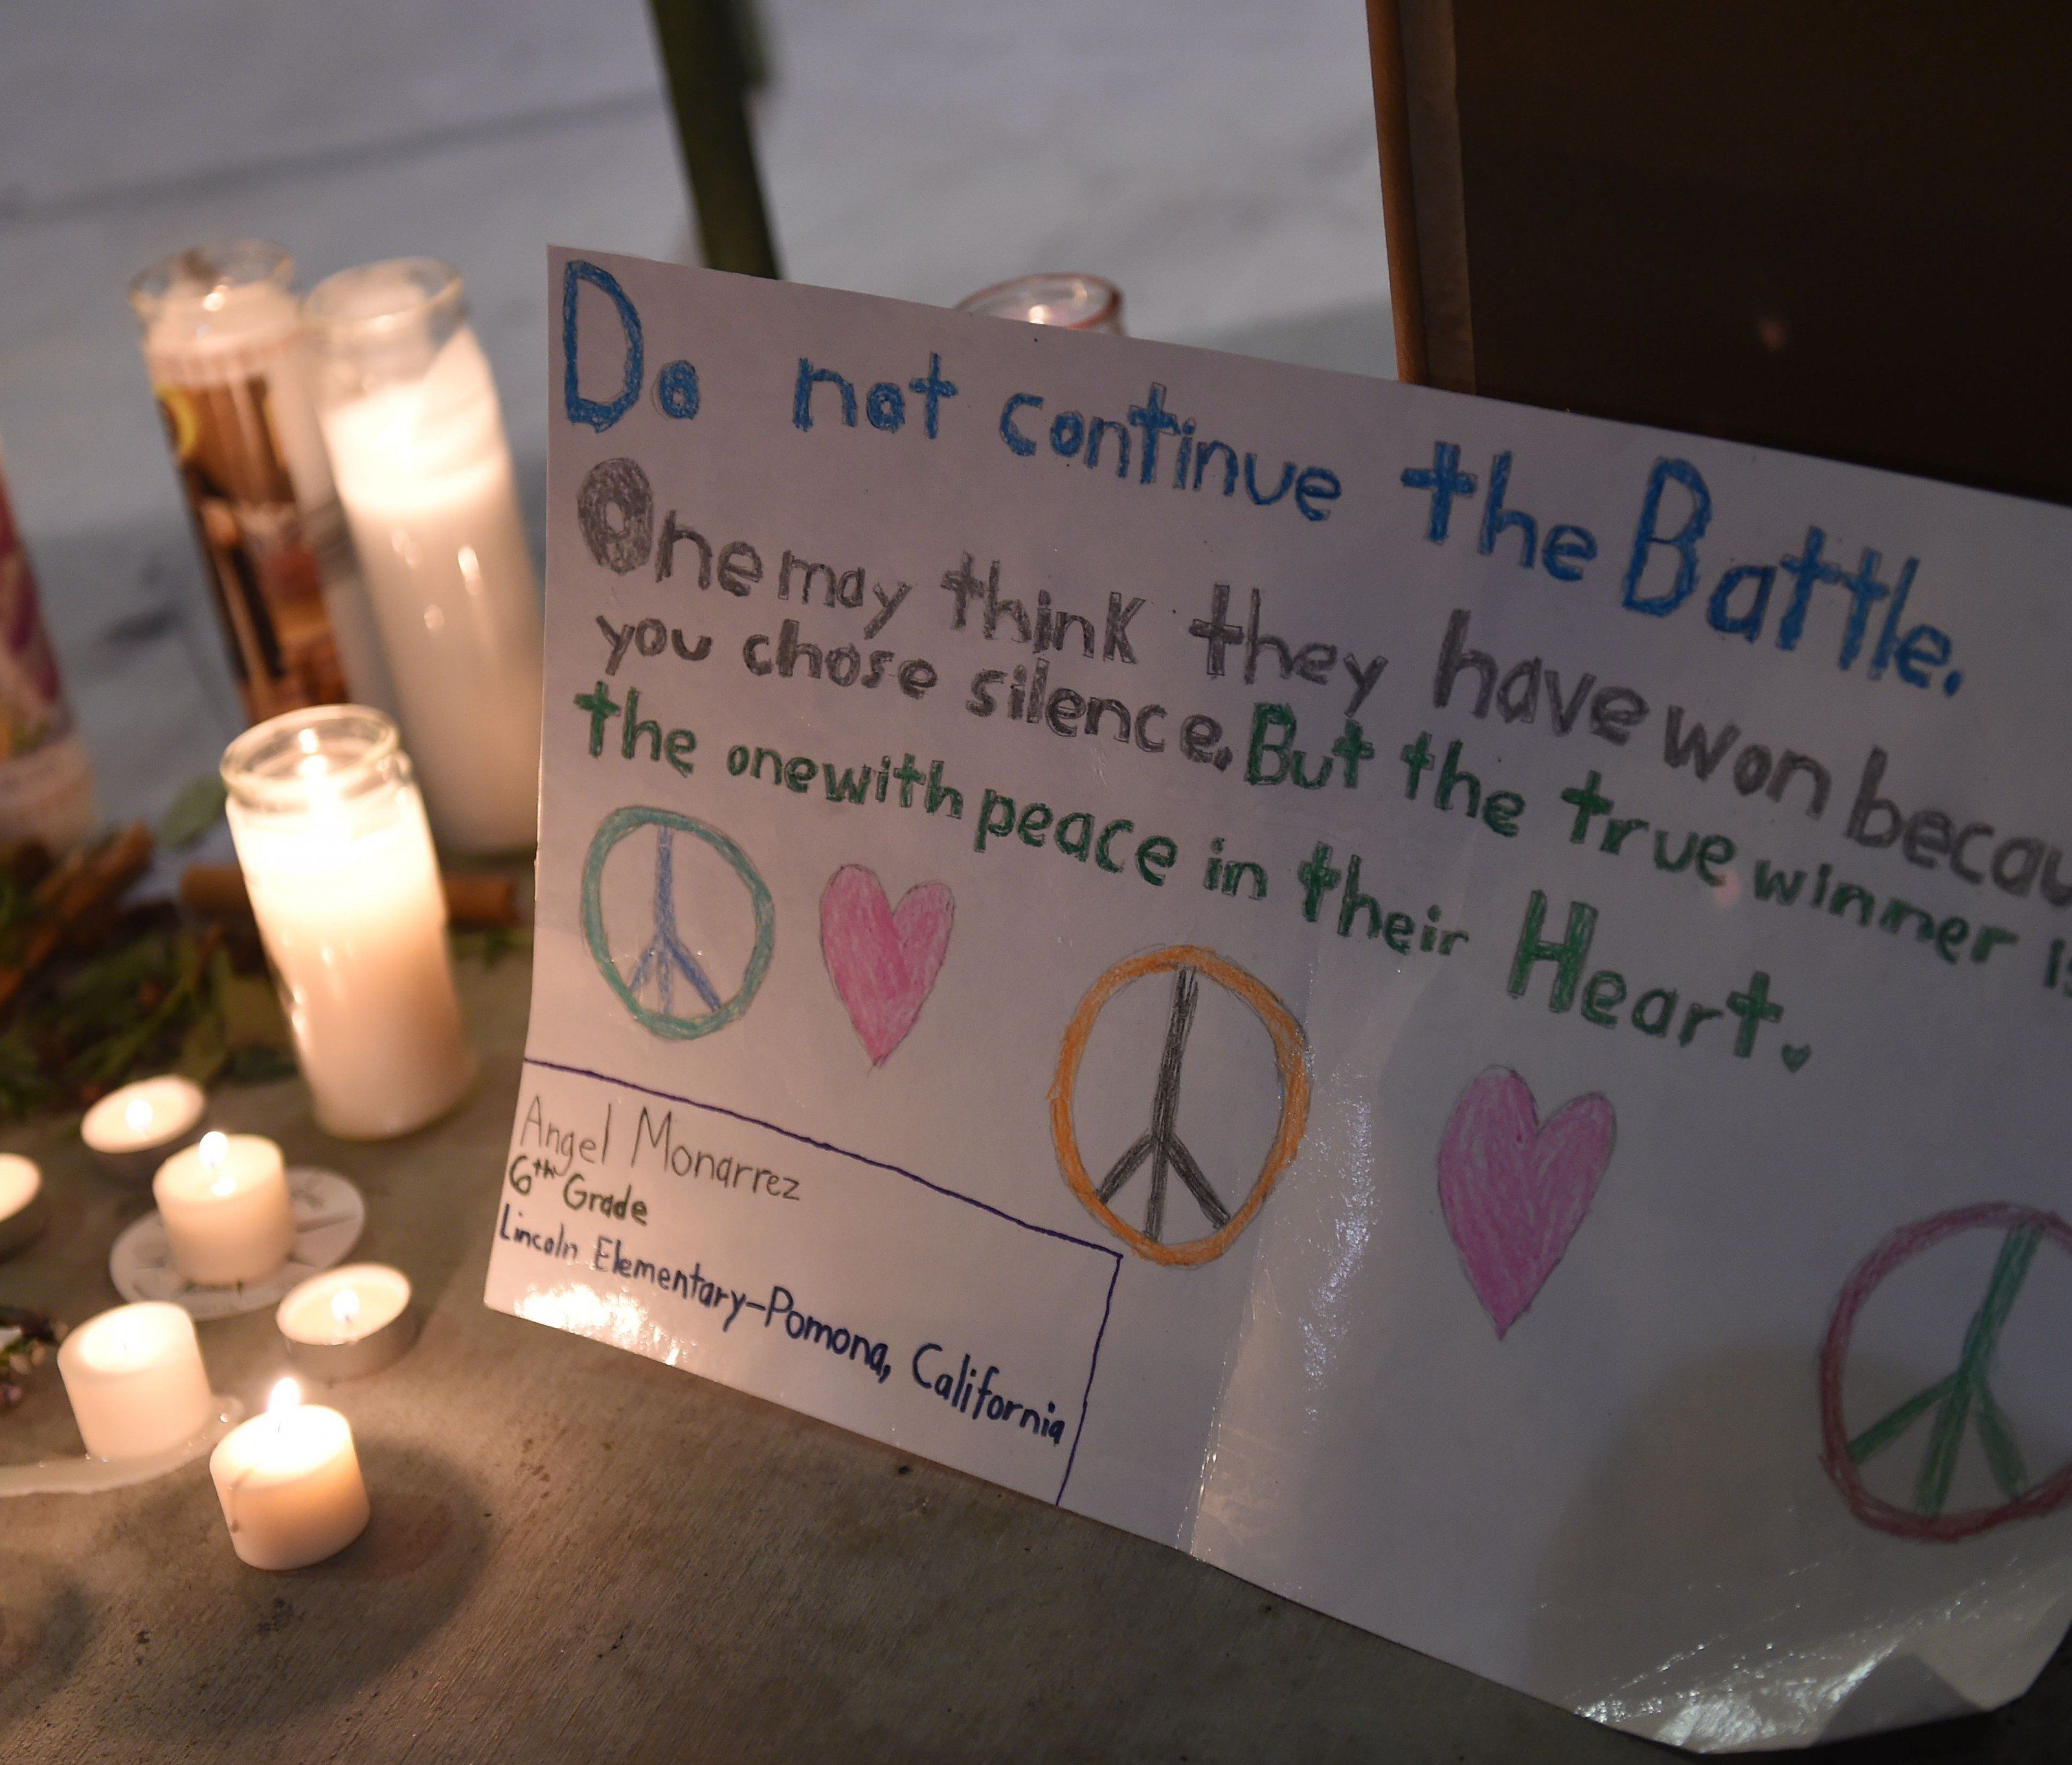 Do not continue the Battle.
One may think they have won becau
you chose silence. But the true winner is
the one with peace in their Heart.
Angel Monarrez
6th Grade
Lincoln Elementary-Pomona, California